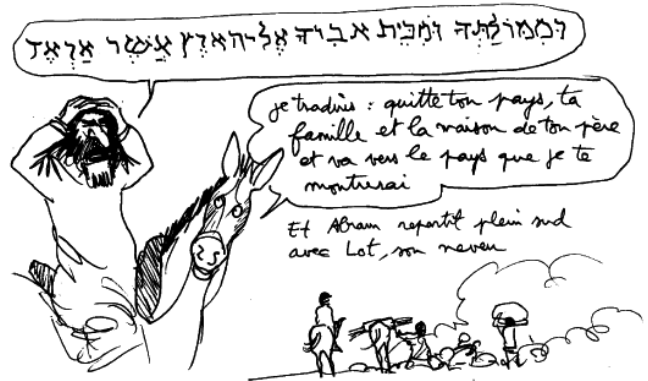 וּמִמוֹלַתְּךָ וּמִבֵּית אָבִיךָ אֶל־הארץ אֲשֶׁר אַרְאֶךָ
je traduis : quitte ton pays, ta
famille et la maison de ton père
et va vers le pays que je te
montrerai
Et Abram repartit plein sud
avec Lot, son neveu